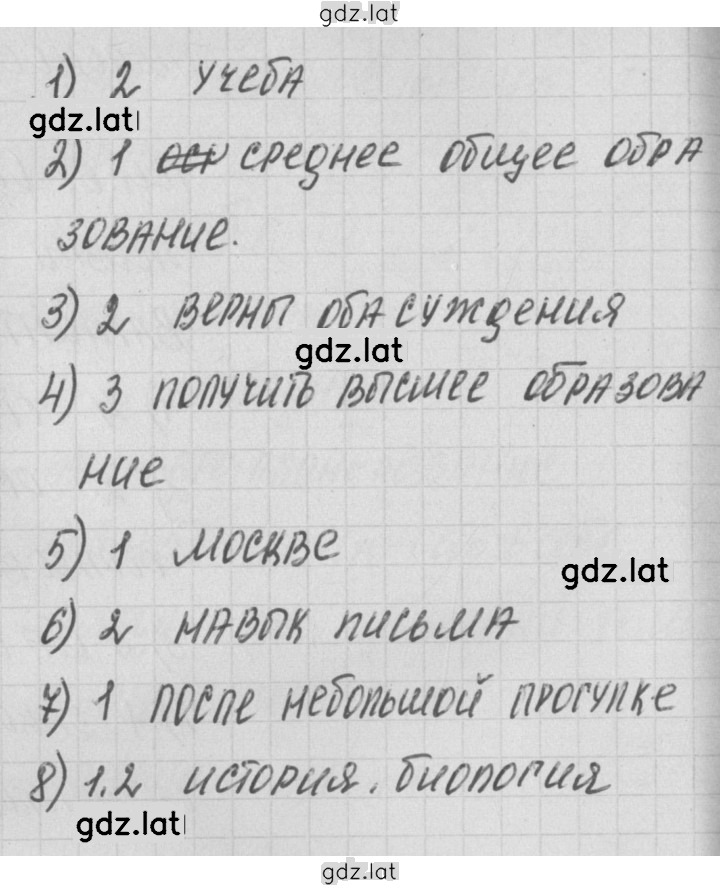 gdz.lat
1) 2 учеба
gdz.lat
2) 1 среднее общее обра
зование.
3) 2 верны оба суждения
gdz.lat
4) 3 получить высшее образова
ние
5) 1 Москве
gdz.lat
6) 2 навык письма
7) 1 после небольшой прогулке
8) 1.2 история, биология
gdz.lat
gdz.lat